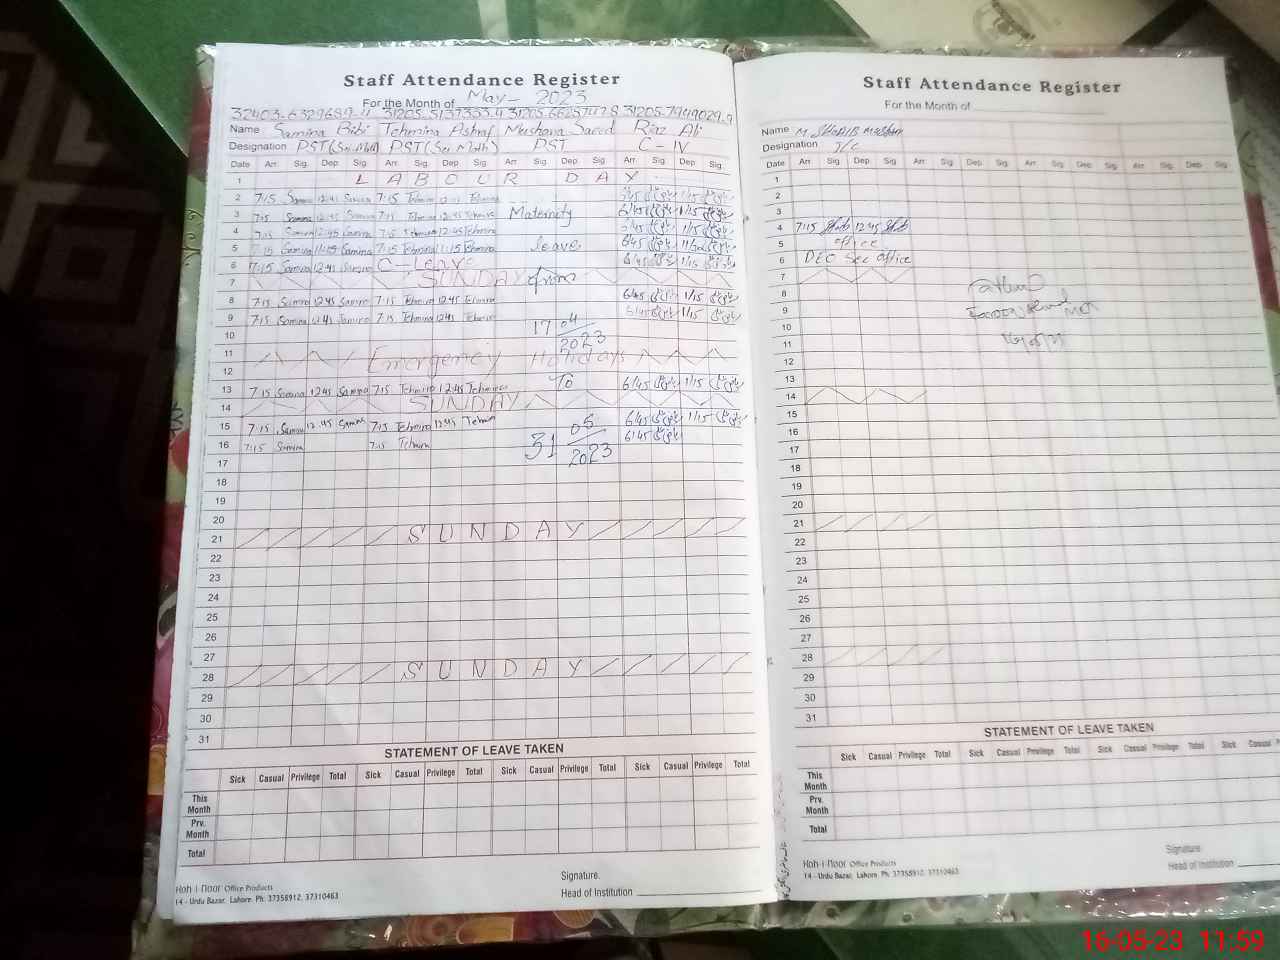 Staff Attendance Register
For the Month of May - 2023
Name Samina Bibi Tehmina Ashraf Mushava Saeed Riaz Ali
Designation PST (Sci.Math) PST (Sci Math) PST C-IV
Date Arr. Sig. Dep. Sig. Arr. Sig. Dep. Sig. Arr Sig. Dep Sig. Arr. Sig. Dep Sig.
1 LABOUR DAY
2 7:15 Samina 12:45 Samina 7:15 Tehmina Tehmina 1/15
3 7:15 Samina 12:45 Samina 7:15 Tehmina 12:45 Tehmina Maternity 6/45 1/15
4 7:15 Samina 12:45 Samina 7:15 Tehmina 12:45 Tehmina 1/15
5 7:15 Samina 11:15 Samina 7:15 Tehmina 11:15 Tehmina leave 6/45
6 7:15 Samina 12:45 Samina C-Leave 6/45 1/15
7 SUNDAY from
8 7:15 Samina 12:45 Samina 7:15 Tehmina 12:45 Tehmina 6/45 1/15
9 7:15 Samina 12:45 Samina 7:15 Tehmina 12:45 Tehmina 6/45 1/15
10 17 04 2023
11 Emergency Holidays
12
13 7:15 Samina 12:45 Samina 7:15 Tehmina 12:45 Tehmina To 6/45 1/15
14 SUNDAY
15 7:15 Samina 12:45 Samina 7:15 Tehmina 12:45 Tehmina 6/45 1/15
16 7:15 Samina 7:15 Tehmina 31 05 2023 6/45
17
18
19
20
21 SUNDAY
22
23
24
25
26
27
28 SUNDAY
29
30
31
STATEMENT OF LEAVE TAKEN
Sick Casual Privilege Total Sick Casual Privilege Total Sick Casual Privilege Total Sick Casual Privilege Total
This Month
Prv. Month
Total
Signature.
Head of Institution
Koh-i-Noor Office Products
14 - Urdu Bazar, Lahore. Ph: 37358912, 37310463
Staff Attendance Register
For the Month of
Name M. SHOAIB
Designation
Date Arr Sig. Dep Sig. Arr. Sig. Dep. Sig. Arr. Sig. Dep. Sig. Arr. Sig. Dep. Sig.
1
2
3
4 7:15 12:45
5 office
6 DEO Sec office
7
8
9
10
11
12
13
14
15
16
17
18
19
20
21
22
23
24
25
26
27
28
29
30
31
STATEMENT OF LEAVE TAKEN
Sick Casual Privilege Total Sick Casual Privilege Total Sick Casual Privilege Total Sick Casual
This Month
Prv. Month
Total
Signature.
Head of Institution
Koh-i-Noor Office Products
14 - Urdu Bazar, Lahore. Ph: 37358912, 37310463
16-05-23 11:59